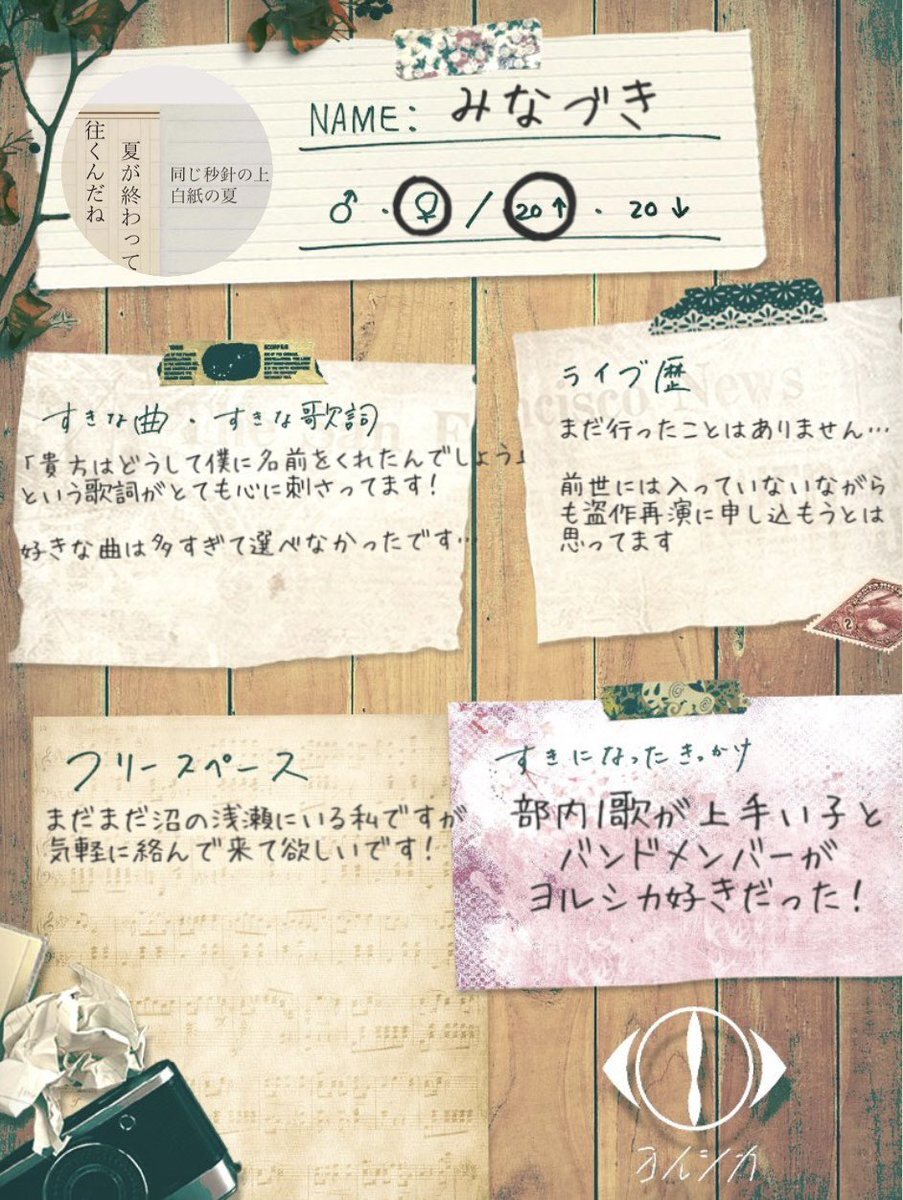 NAME: みなづき
夏が終わって
往くんだね
同じ秒針の上
白紙の夏
♂・♀/20↑・20↓
すきな曲・すきな歌詞
「貴方はどうして僕に名前をくれたんでしょう」
という歌詞がとても心に刺さってます!
好きな曲は多すぎて選べなかったです…
ライブ歴
まだ行ったことはありません…
前世には入っていないながら
も盗作再演に申し込もうとは
思ってます
フリースペース
まだまだ沼の浅瀬にいる私ですが
気軽に絡んで来て欲しいです!
すきになったきっかけ
部内1歌が上手い子と
バンドメンバーが
ヨルシカ好きだった!
ヨルシカ